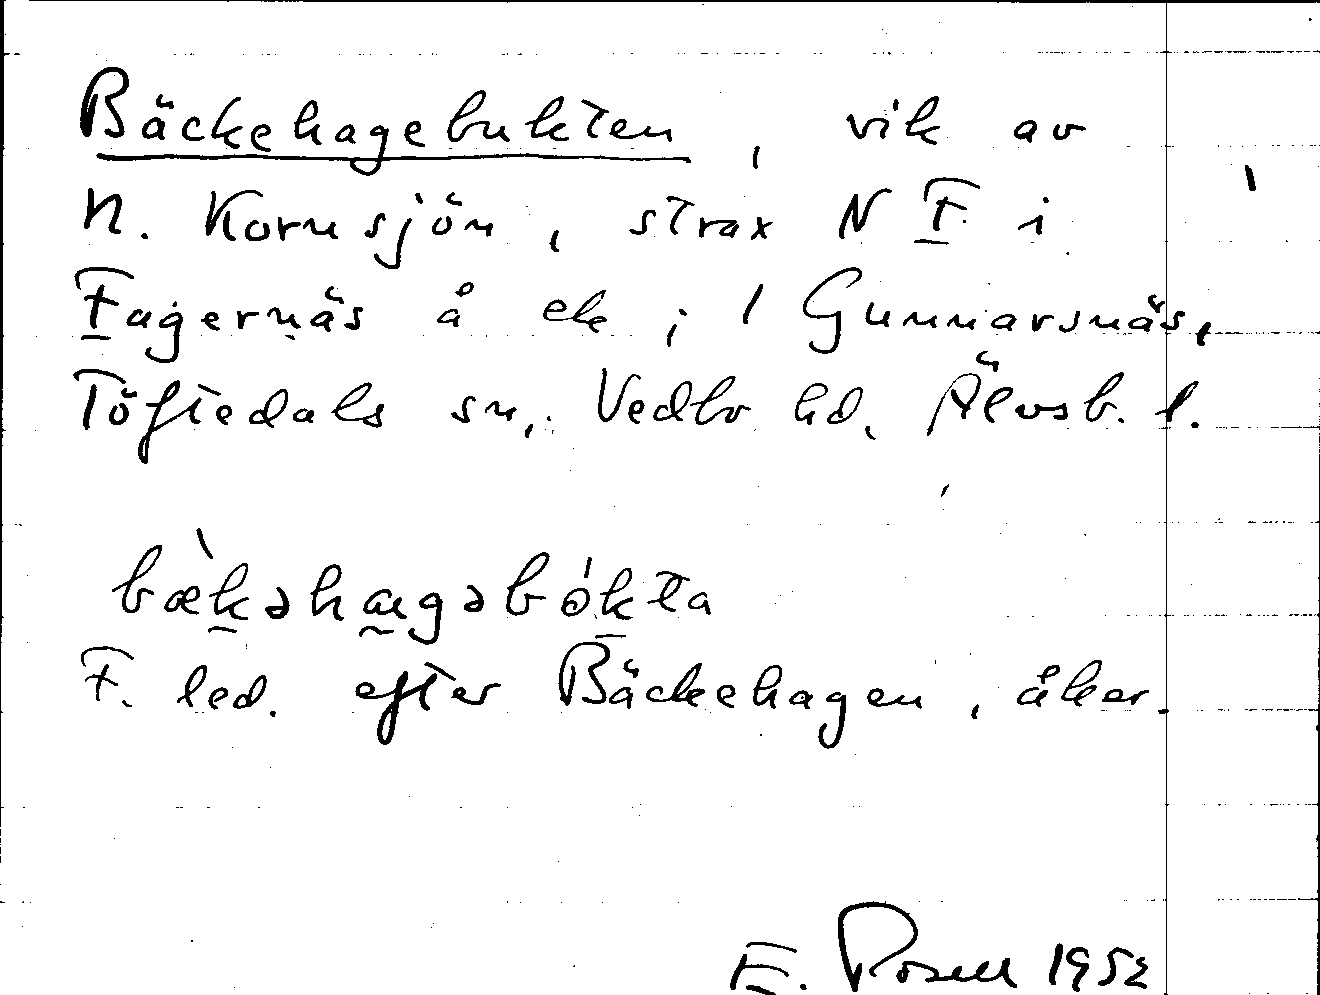 Bäckehagebukten, vik av
N. Kornsjön, strax N F i
Fagernäs å ek i / Gunnarsnäs,
Töftedals sn, Vedbo hd, Älvsb. l.
bæ̀kəhagəbókta
F. led. efter Bäckehagen, åker.
E. Rosell 1952